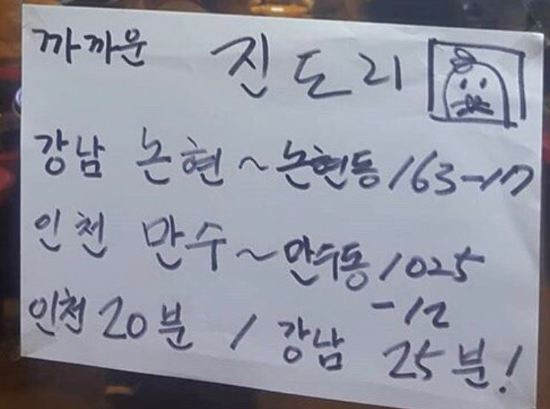 까까운 진도리
강남 논현 ~ 논현동 163-17
인천 만수 ~ 만수동 1025
-12
인천 20분 / 강남 25분!